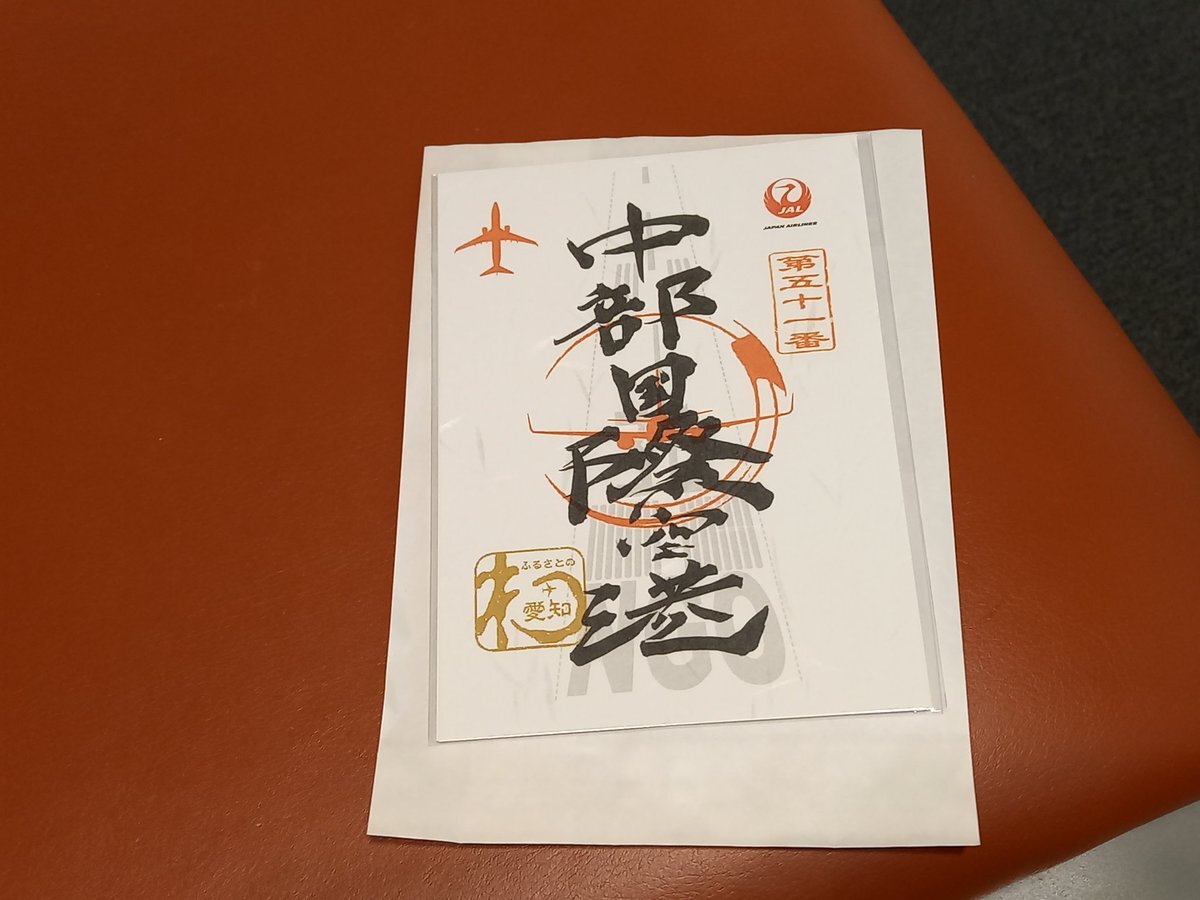 JAL
JAPAN AIRLINES
第五十一番
中部国際空港
ふるさとの
愛知
NGO